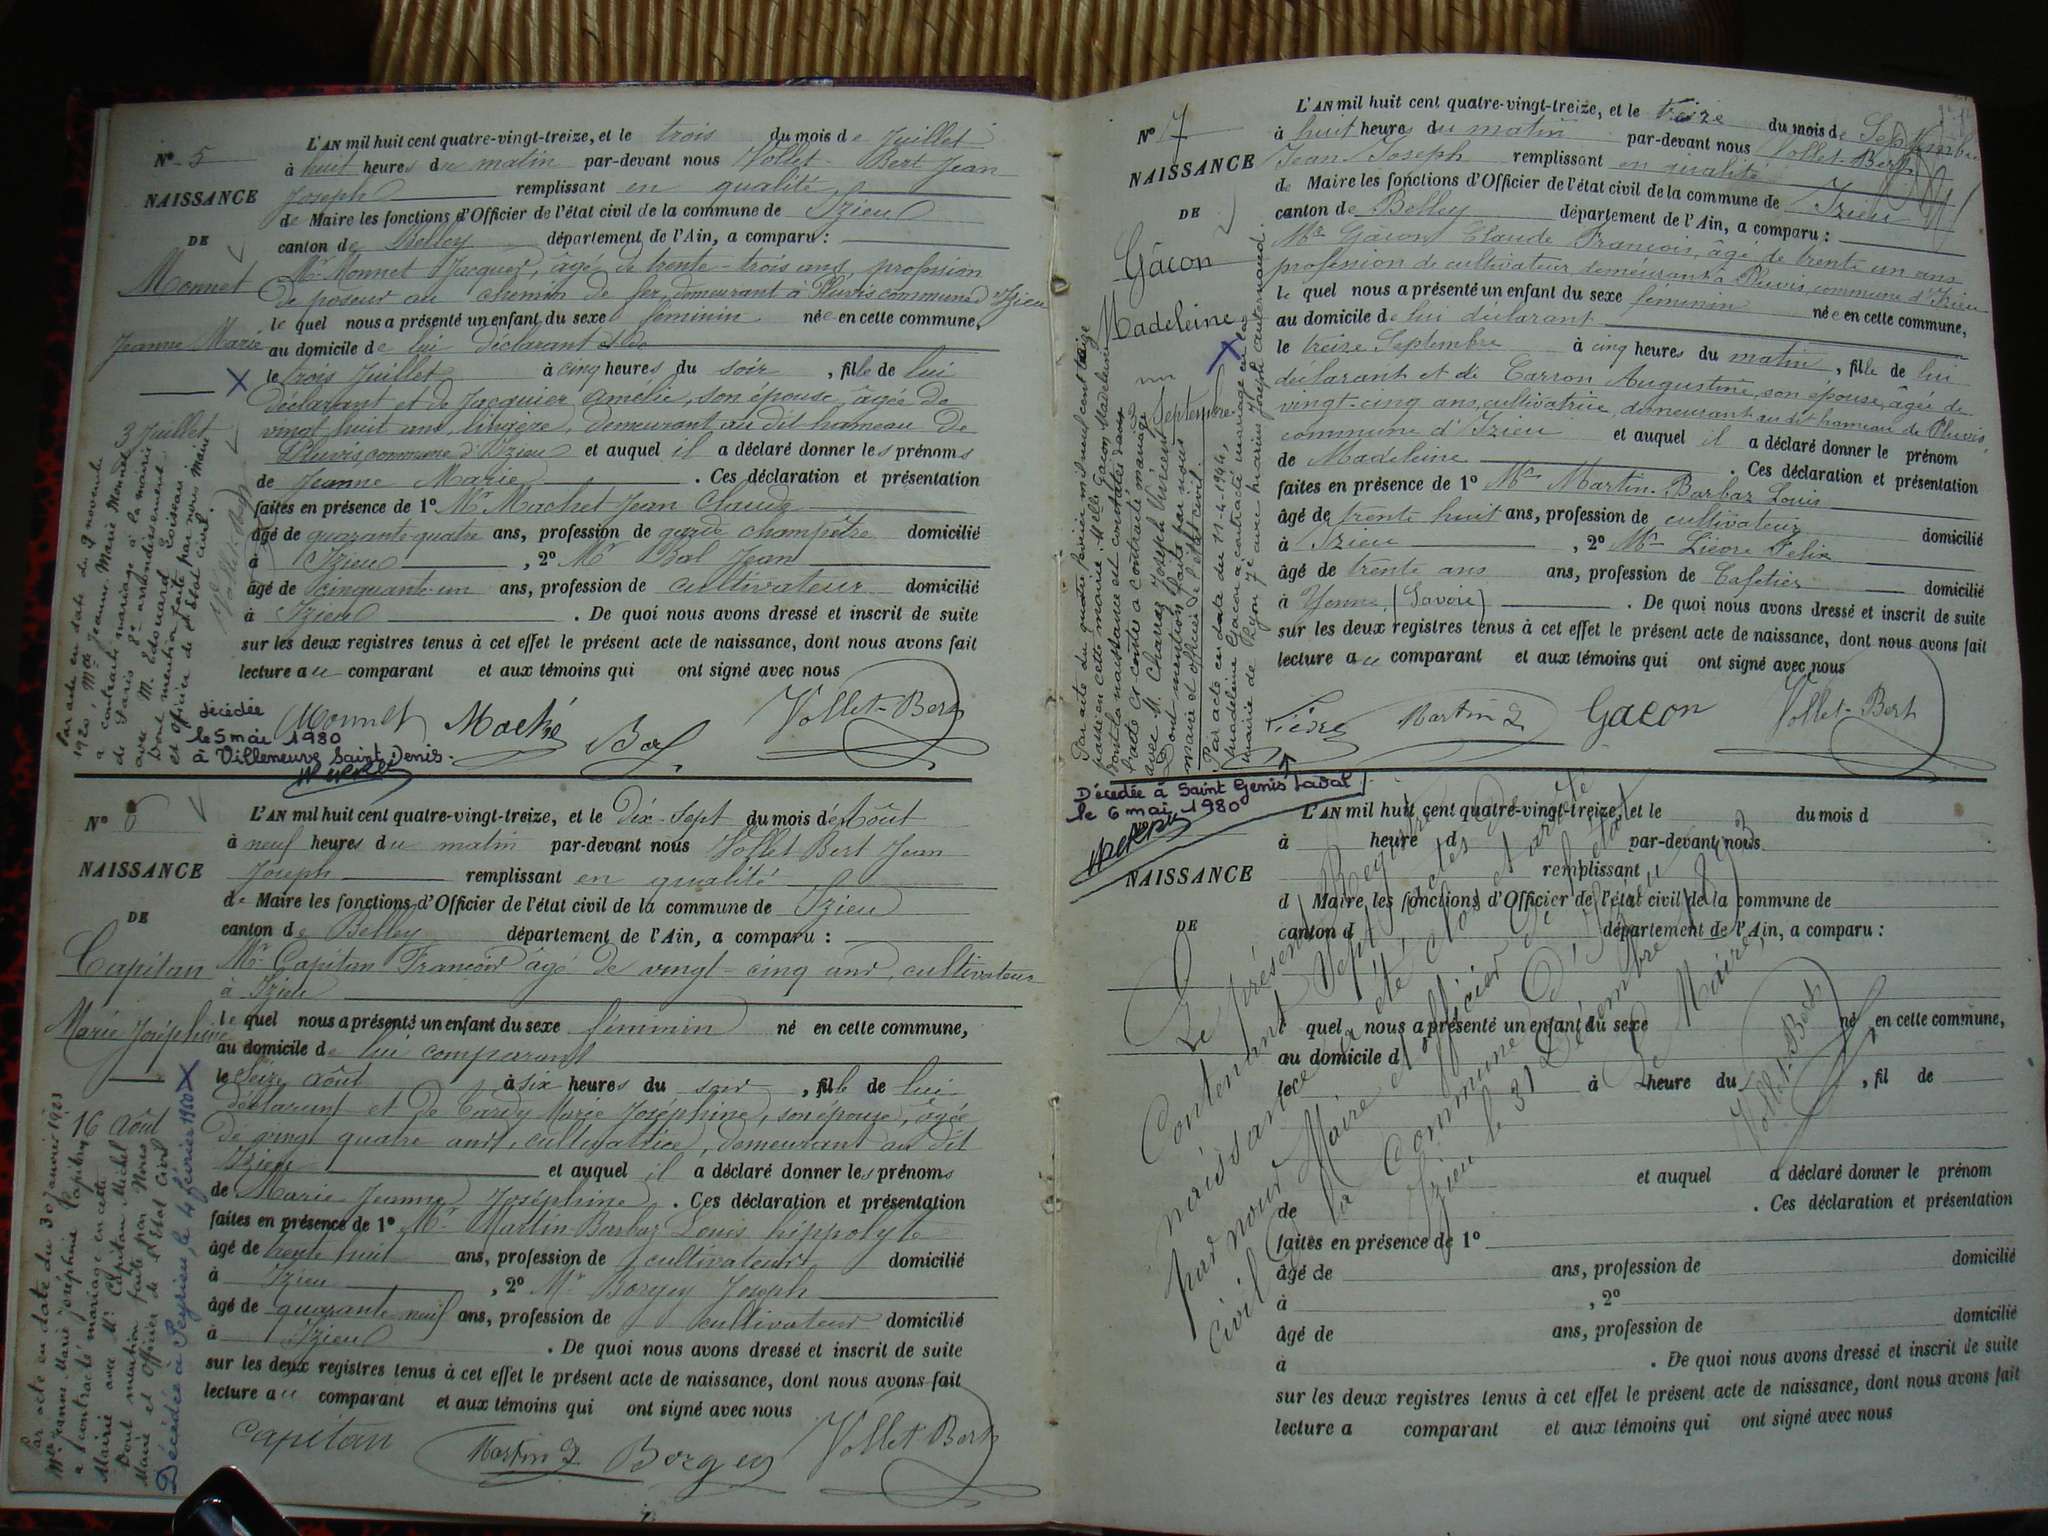 N° 5
NAISSANCE
DE
Monnet
Jeanne Marie
3 Juillet
L'AN mil huit cent quatre-vingt-treize, et le trois du mois de Juillet
à huit heures du matin par-devant nous Vollet-Bert Jean
Joseph remplissant en qualité
de Maire les fonctions d'Officier de l'état civil de la commune de Izieu
canton de Belley département de l'Ain, a comparu :
Mr Monnet Jacques, âgé de trente-trois ans, profession
de poseur au chemin de fer, demeurant à Pluvis commune d'Izieu
le quel nous a présenté un enfant du sexe féminin née en cette commune,
au domicile de lui déclarant
le trois Juillet à cinq heures du soir, fille de lui
déclarant et de Jacquier Amélie, son épouse, âgée de
vingt huit ans, lingère, demeurant au dit hameau de
Pluvis, commune d'Izieu et auquel il a déclaré donner les prénoms
de Jeanne Marie . Ces déclaration et présentation
faites en présence de 1° Mr Machet Jean Claude
âgé de quarante-quatre ans, profession de garde champêtre domicilié
à Izieu , 2° Mr Bal Jean
âgé de cinquante-un ans, profession de cultivateur domicilié
à Izieu . De quoi nous avons dressé et inscrit de suite
sur les deux registres tenus à cet effet le présent acte de naissance, dont nous avons fait
lecture au comparant et aux témoins qui ont signé avec nous
Monnet Vollet-Bert
Par acte en date du 9 novembre
1920, Melle Jeanne Marie Monnet
a contracté mariage à la mairie
de Paris 8e arrondissement
avec M. Edouard Loiseau
Dont mention faite par nous Maire
et officier de l'état civil.
Vollet-Bert
décédée
le 5 mai 1980
à Villeneuve Saint Denis.
N° 6
NAISSANCE
DE
Capitan
Marie Joséphine
16 Août
L'AN mil huit cent quatre-vingt-treize, et le Dix-sept du mois de Août
à neuf heures du matin par-devant nous Vollet Bert Jean
Joseph remplissant en qualité
de Maire les fonctions d'Officier de l'état civil de la commune de Izieu
canton de Belley département de l'Ain, a comparu :
Mr Capitan François âgé de vingt-cinq ans, cultivateur
à Izieu
le quel nous a présenté un enfant du sexe féminin né en cette commune,
au domicile de lui comparant
le Seize Août à six heures du soir, fille de lui
déclarant et de Tardy Marie Joséphine, son épouse, âgée
de vingt quatre ans, cultivatrice, demeurant au dit
Izieu et auquel il a déclaré donner les prénoms
de Marie Jeanne Joséphine . Ces déclaration et présentation
faites en présence de 1° Mr Martin Barbaz Louis hippolyte
âgé de trente huit ans, profession de cultivateur domicilié
à Izieu , 2° Mr Borgey Joseph
âgé de quarante neuf ans, profession de cultivateur domicilié
à Izieu . De quoi nous avons dressé et inscrit de suite
sur les deux registres tenus à cet effet le présent acte de naissance, dont nous avons fait
lecture au comparant et aux témoins qui ont signé avec nous
Capitan Martin L Borgey Vollet-Bert
Par acte en date du 30 janvier 1923
Melle Jeanne Marie Joséphine Capitan
a contracté mariage en cette
Mairie avec Mr Capitan Michel
Dont mention faite par Nous
Maire et Officier de l'Etat Civil
Décédée à Peyrieu, le 4 février 1980
N° 7
NAISSANCE
DE
Gâcon
Madeleine
13 Septembre
L'AN mil huit cent quatre-vingt-treize, et le treize du mois de Septembre
à huit heures du matin par-devant nous Vollet-Bert
Jean Joseph remplissant en qualité
de Maire les fonctions d'Officier de l'état civil de la commune de Izieu
canton de Belley département de l'Ain, a comparu :
Mr Gâcon Claude François, âgé de trente un ans
profession de cultivateur demeurant à Pluvis, commune d'Izieu
le quel nous a présenté un enfant du sexe féminin née en cette commune,
au domicile de lui déclarant
le treize Septembre à cinq heures du matin, fille de lui
déclarant et de Carron Augustine, son épouse, âgée de
vingt-cinq ans, cultivatrice, demeurant au dit hameau de Pluvis
commune d'Izieu et auquel il a déclaré donner le prénom
de Madeleine . Ces déclaration et présentation
faites en présence de 1° Mr Martin-Barbaz Louis
âgé de trente huit ans, profession de cultivateur domicilié
à Izieu , 2° Mr Lièvre Félix
âgé de trente ans ans, profession de Cafetier domicilié
à Yenne (Savoie) . De quoi nous avons dressé et inscrit de suite
sur les deux registres tenus à cet effet le présent acte de naissance, dont nous avons fait
lecture au comparant et aux témoins qui ont signé avec nous
Lièvre Martin L Gacon Vollet-Bert
Par acte du quatre février mil neuf cent treize
passé en cette mairie Melle Gacon Madeleine
dont la naissance est constatée dans
l'acte ci-contre a contracté mariage
avec M. Charres Joseph Vincent
Dont mention faite par nous
maire et officier de l'état civil.
Par acte en date du 11-4-1944,
Madeleine Gacon a contracté mariage en la
mairie de Lyon 7e avec Marius Joseph
Décédée à Saint Genis Laval
le 6 mai 1980
NAISSANCE
DE
L'AN mil huit cent quatre-vingt-treize, et le du mois d
à heure d par-devant nous
remplissant
d Maire les fonctions d'Officier de l'état civil de la commune de
canton d département de l'Ain, a comparu :
l quel nous a présenté un enfant du sexe né en cette commune,
au domicile d
le à heure du , fil de
et auquel a déclaré donner le prénom
de . Ces déclaration et présentation
faites en présence de 1°
âgé de ans, profession de domicilié
à , 2°
âgé de ans, profession de domicilié
à . De quoi nous avons dressé et inscrit de suite
sur les deux registres tenus à cet effet le présent acte de naissance, dont nous avons fait
lecture a comparant et aux témoins qui ont signé avec nous
Le présent Registre
Contenant sept actes de
naissance a été clos et arrêté
par nous Maire et officier de l'état
civil de la Commune d'Izieu
Izieu le 31 Décembre 1893
Le Maire,
Vollet-Bert